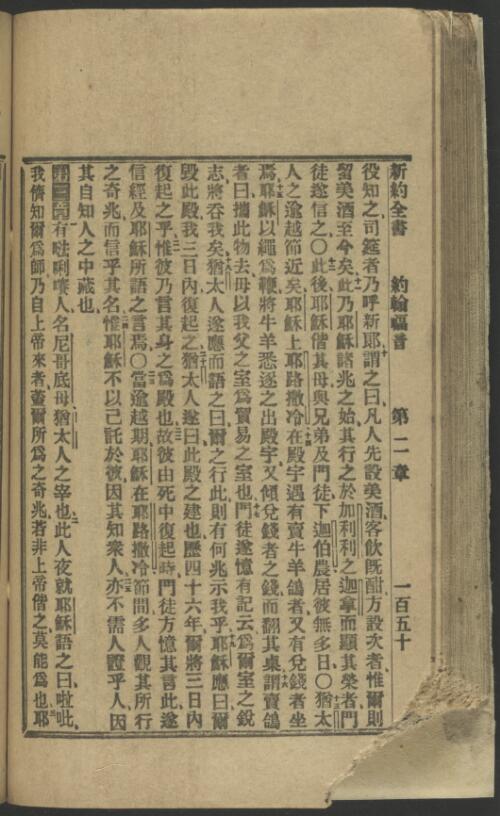 新約全書　約翰福音　第二章　一百五十
役知之司筵者乃呼新郎謂之曰凡人先設美酒客飲既酣方設次者惟爾則
留美酒至今矣此乃耶穌諸兆之始其行之於加利利之迦拿而顯其榮者門
徒遂信之〇此後耶穌偕其母與兄弟及門徒下迦伯農居彼無多日〇猶太
人之逾越節近矣耶穌上耶路撒冷在殿宇遇有賣牛羊鴿者又有兌錢者坐
焉耶穌以繩爲鞭將牛羊悉逐之出殿宇又傾兌錢者之錢而翻其桌謂賣鴿
者曰攜此物去毋以我父之室爲貿易之室也門徒遂憶有記云爲爾室之銳
志將吞我矣猶太人遂應而語之曰爾之行此則有何兆示我乎耶穌應曰爾
毀此殿我三日內復起之猶太人遂曰此殿之建也歷四十六年爾將三日內
復起之乎惟彼乃言其身之爲殿也故彼由死中復起時門徒方憶其言此遂
信經及耶穌所語之言焉〇當逾越期耶穌在耶路撒冷節間多人觀其所行
之奇兆而信乎其名惟耶穌不以己託於彼因其知衆人亦不需人證乎人因
其自知人之中藏也
第三章有𠵽唎㘔人名尼哥底母猶太人之宰也此人夜就耶穌語之曰啦吡
我儕知爾爲師乃自上帝來者蓋爾所爲之奇兆若非上帝偕之莫能爲也耶